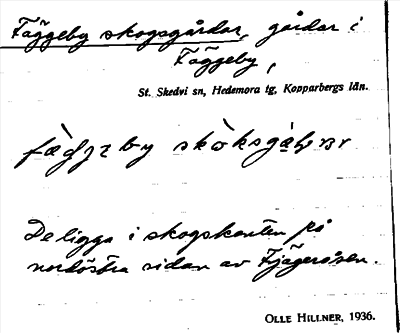 Fäggeby skogsgårdar, gårdar i
Fäggeby,
St. Skedvi sn, Hedemora tg, Kopparbergs län.
De ligga i skogskanten på
nordöstra sidan av Fjägeråsen.
OLLE HILLNER, 1936.